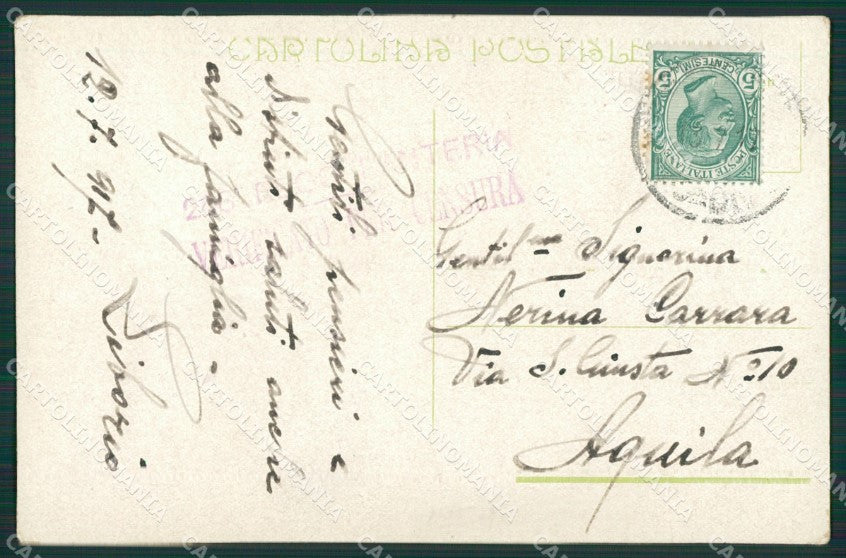 CARTOLINA POSTALE
5 CENTESIMI 5
POSTE ITALIANE
FANTERIA
VERIFICATO PER CENSURA
Gentili pensieri e
distinti saluti anche
alla famiglia -
19.7.917-
Liborio
Gentil.ma Signorina
Nerina Carrara
Via S. Giusta N 210
Aquila
CARTOLINOMANIA